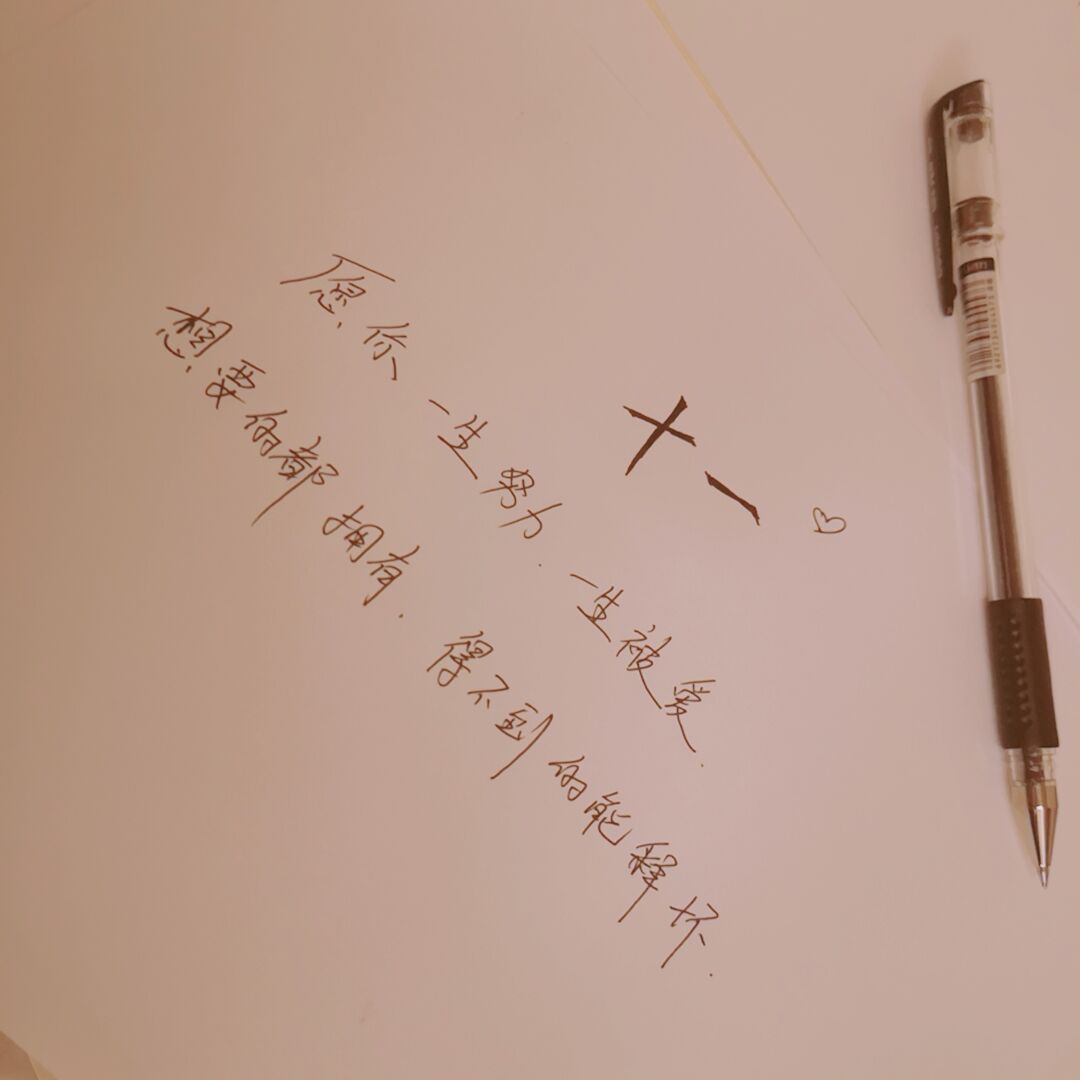 十一
愿你一生努力.一生被爱.
想要的都拥有.得不到的能释怀.